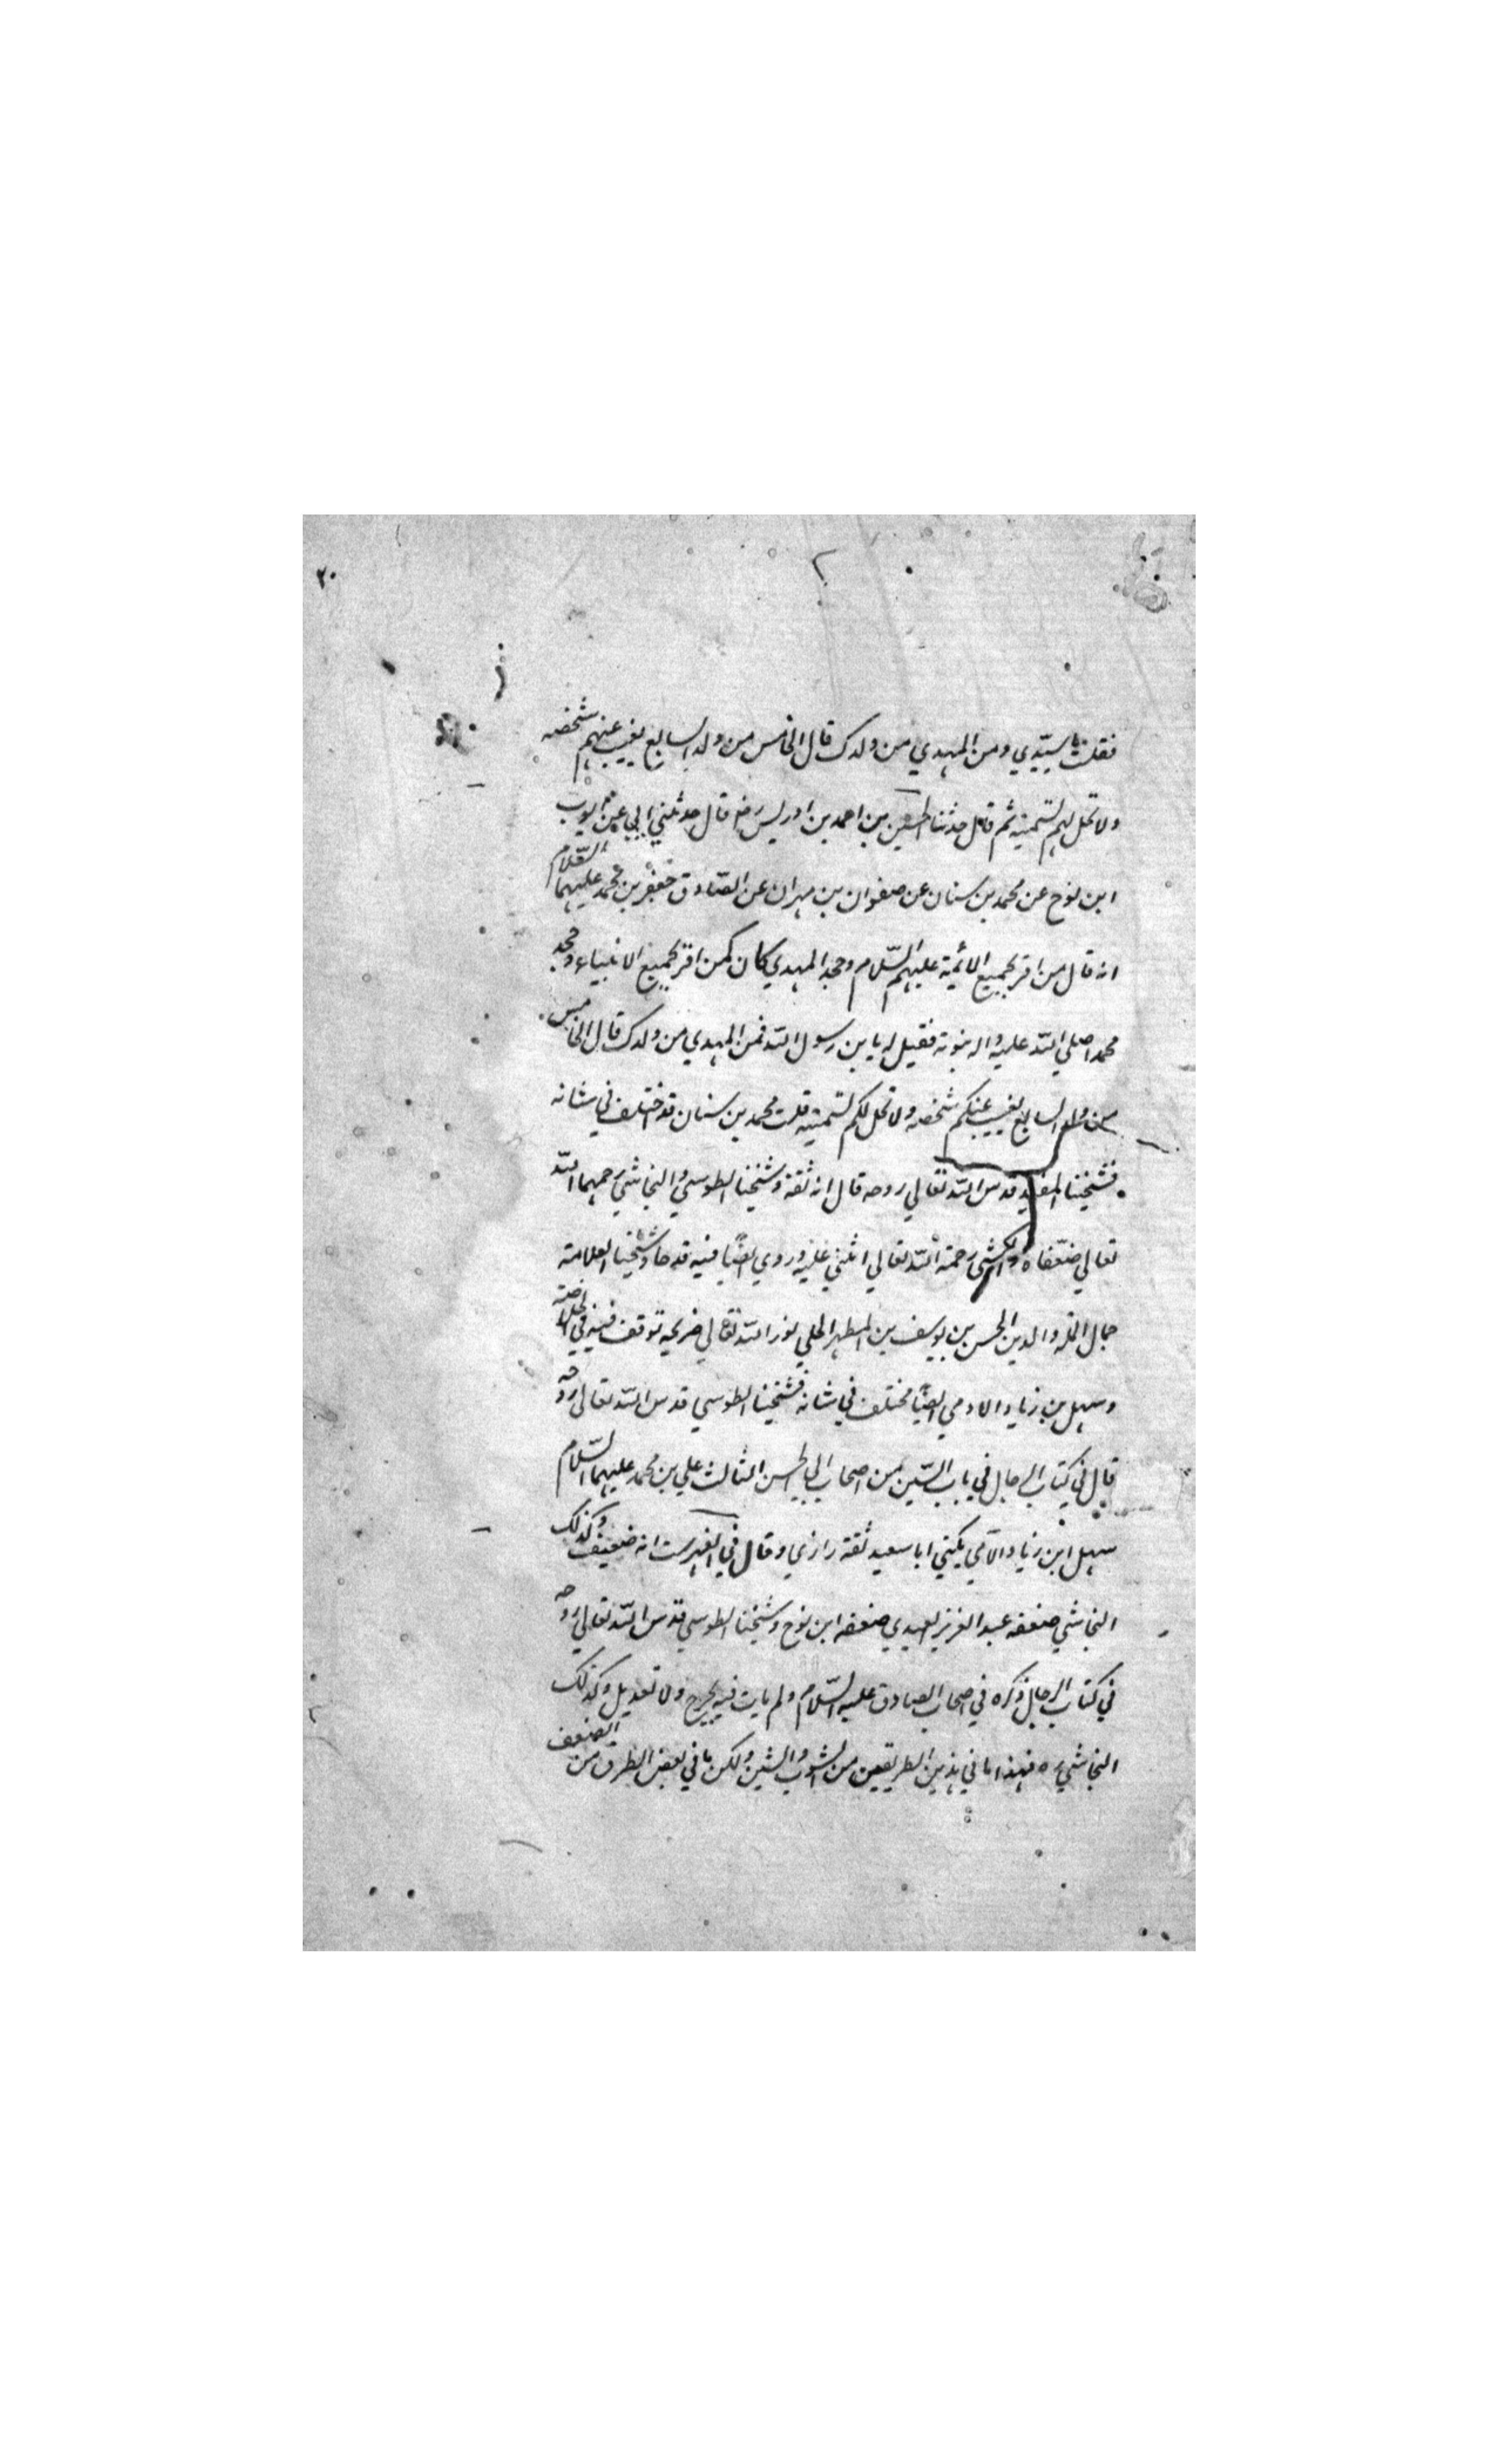 ٢٠
فقلت يا سيدي ومن المهدي من ولدك قال الخامس من ولد السابع يغيب عنهم شخصه
ولا تحل لهم تسميته ثم قال حدثنا الحسين بن احمد بن ادريس رض قال حدثني ابي عن ايوب
ابن نوح عن محمد بن سنان عن صفوان بن مهران عن الصادق جعفر بن محمد عليهما السّلام
انه قال من اقر بجميع الائمة عليهم السّلام وجحد المهدي كان كمن اقر بجميع الانبياء وجحد
محمدا صلي الله عليه واله نبوته فقيل له يا بن رسول الله فمن المهدي من ولدك قال الخامس
من ولد السابع يغيب عنكم شخصه ولا تحل لكم تسميته قلت محمد بن سنان قد اختلف في شانه
فشيخنا المفيد قدس الله تعالي روحه قال انه ثقة وشيخنا الطوسي والنجاشي رحمهما الله
تعالي ضعّفاه والكشي رحمة الله تعالي اثني عليه وروي ايضًا فيه قدحا وشيخنا العلامة
جمال الملة والدين الحسن بن يوسف بن المطهر الحلي نور الله تعالي ضريحه توقف فيه في الخلاصة
وسهل بن زياد الادمي ايضًا مختلف في شانه فشيخنا الطوسي قدس الله تعالي روحه
قال في كتاب الرجال في باب السّين من اصحاب ابي الحسن الثالث علي بن محمد عليهما السّلام
سهل ابن زياد الآدمي يكني ابا سعيد ثقة رازي وقال في الفهرست انه ضعيف وكذلك
النجاشي ضعفه عبد العزيز العبدي ضعفه ابن نوح وشيخنا الطوسي قدس الله تعالي روحه
في كتاب الرجال ذكره في اصحاب الصادق عليه السّلام ولم يات فيه بجرح ولا تعديل وكذلك
النجاشي ره فهذا ما في هذين الطريقين من الشوب والشين ولكن ما في بعض الطرق من الضعف